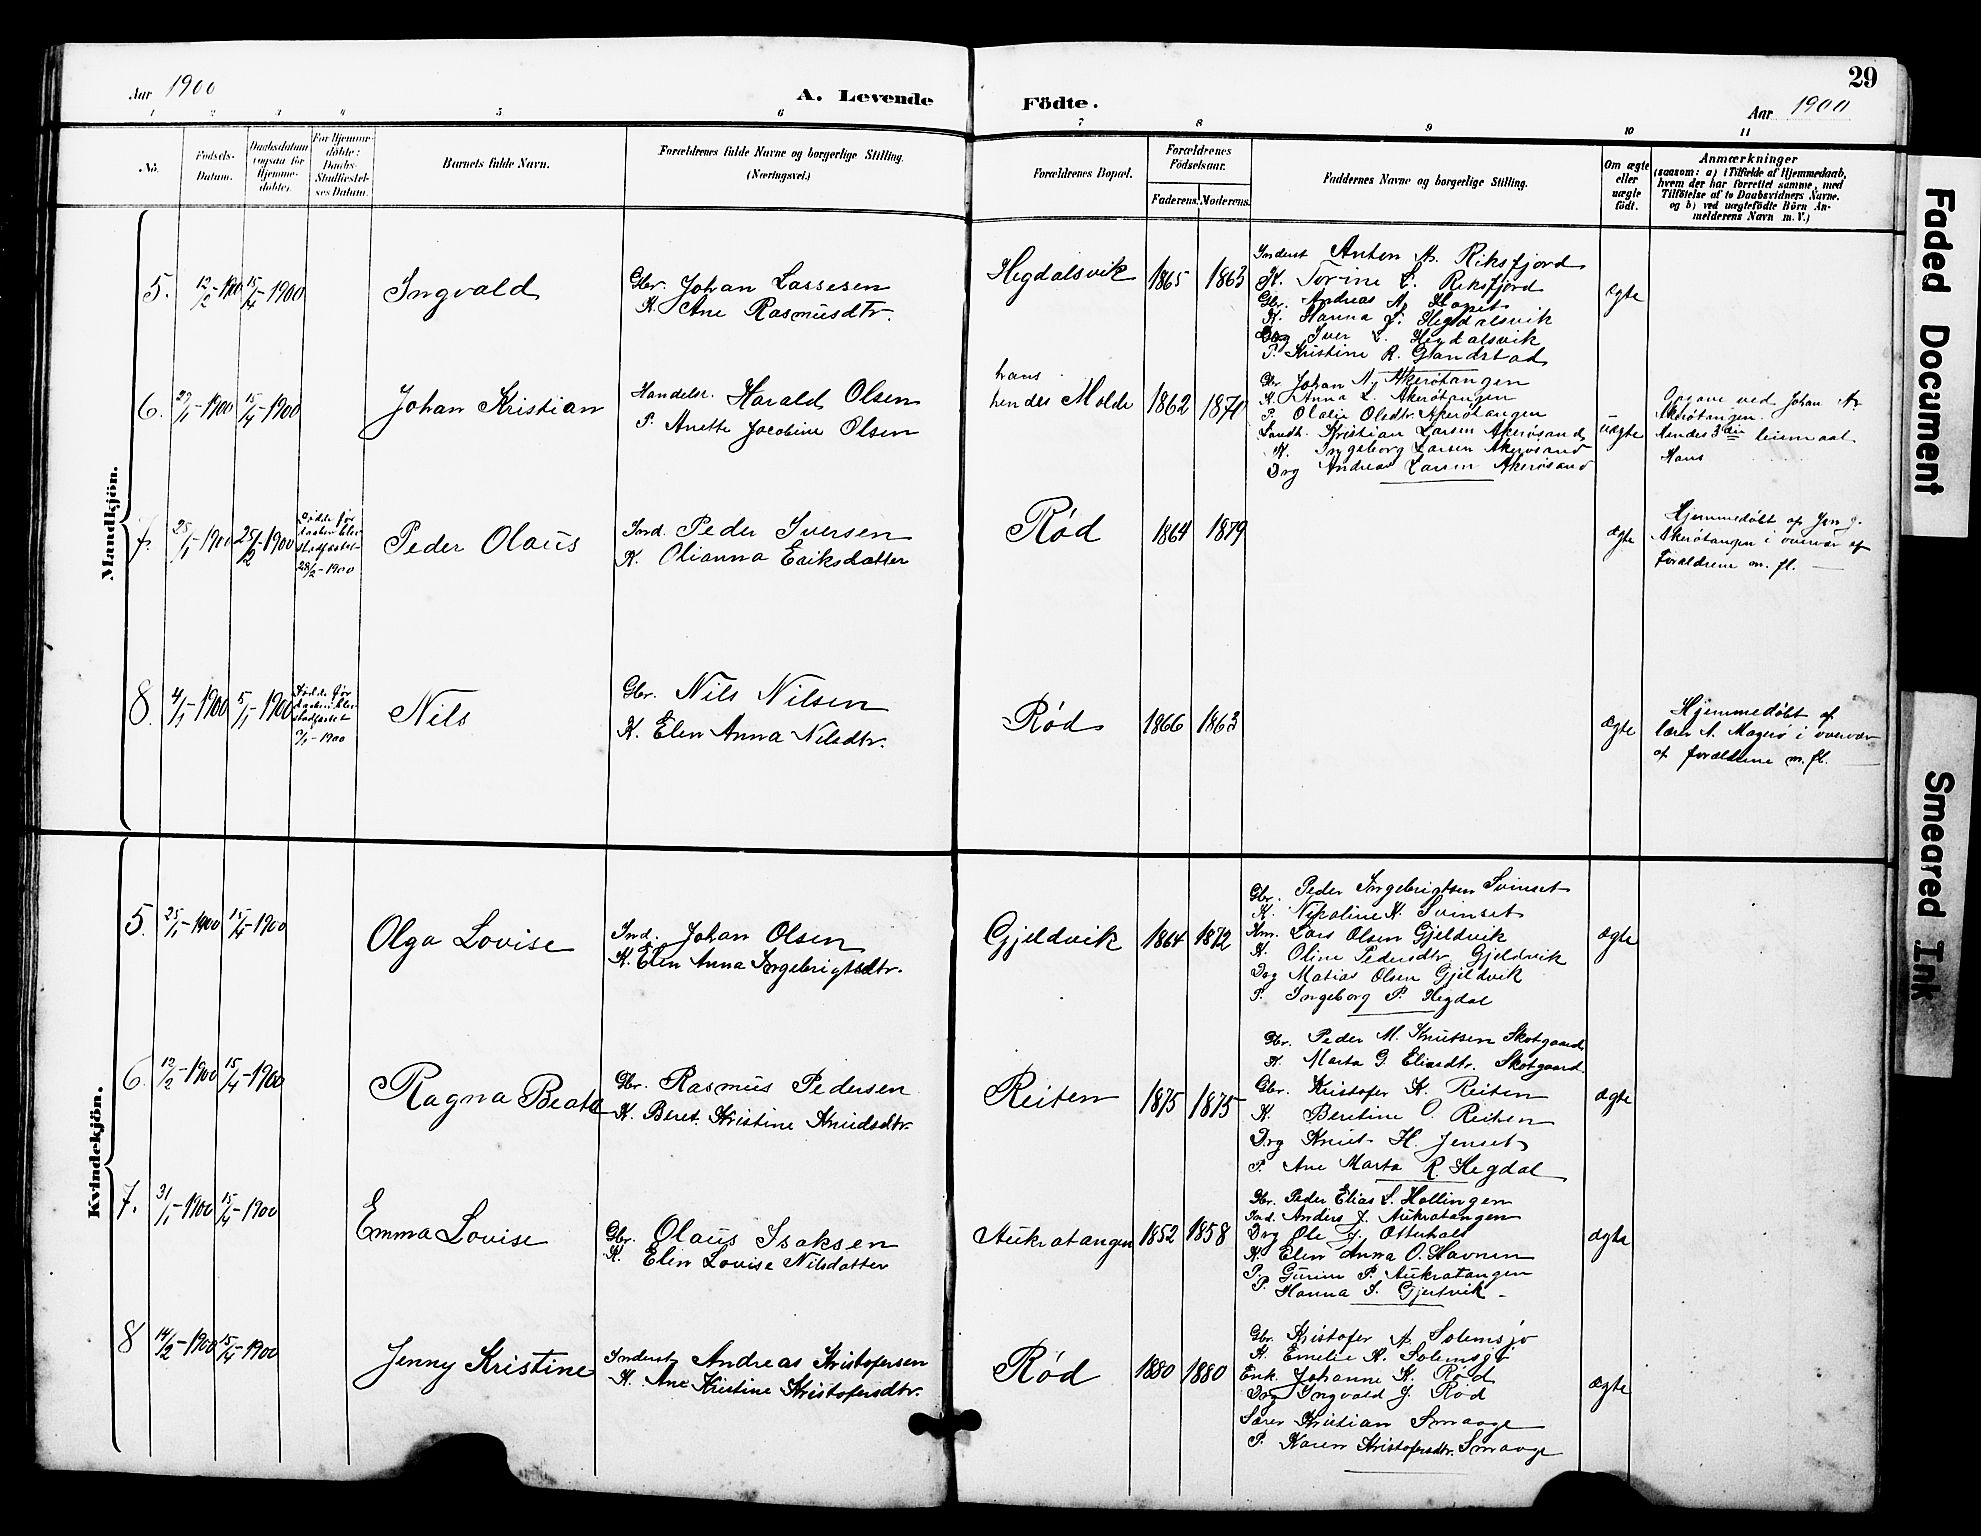 29
Aar 1900
A. Levende
Födte.
Aar 1900
1 2 3 4 5 6 7 8 9 10 11
No.
Födsels-
Datum.
Daabsdatum
(ogsaa for
Hjemme-
döbte).
For Hjemme-
döbte:
Daabs-
Stadfæstel-
ses Datum.
Barnets fulde Navn.
Forældrenes fulde Navne og borgerlige Stilling.
(Næringsvei.)
Forældrenes Bopæl.
Forældrenes
Födselsaar.
Faderens. Moderens.
Faddernes Navne og borgerlige Stilling.
Om ægte
eller
uægte
födt.
Anmærkninger
(saasom: a) i Tilfælde af Hjemmedaab,
hvem der har forrettet samme, med
Tilföielse af to Daabsvidners Navne.
og b) ved uægtefödte Börn An-
melderens Navn m. V.)
Mandkjön.
5. 12/2-1900 15/4-1900
Ingvald
Gbr. Johan Lassesen
K. Ane Rasmusdtr.
Hegdalsvik 1865 1863
Inderst Anton A. Riksfjord
K. Torine L. Riksfjord
Gbr. Andreas A. Hopet
K. Hanna J. Hegdalsvik
Ung Iver L. Hegdalsvik
P. Kristine R. Grandstad
ægte
6. 27/1-1900 15/4-1900
Johan Kristian
Handelsr. Harald Olsen
P. Anette Jacobine Olsen
hans
hendes Molde 1862 1870
Gbr Johan N. Akerøtangen
K. Anna L. Akerøtangen
P. Olalie Olsdtr. Akerøtangen
Landh. Kristian Larsen Akerøsand
K. Ingeborg Larsen Akerøsand
Ung Andreas Larsen Akerøsand
uægte
Opgave ved Johan N.
Akerøtangen.
Hendes 3die leiemaal
Hans
7. 25/1-1900 25/2-1900
28/2-1900
Peder Olaus
Ind. Peder Iversen
K. Olianna Eriksdatter
Rød 1864 1879
ægte
Hjemmedøbt af Joh J.
Akerøtangen i overvær af
Forældrene m. fl.
8. 4/1-1900 5/1-1900
Nils
Gbr. Nils Nilsen
K. Elen Anna Nilsdtr.
Rød 1866 1863
ægte
Hjemmedøbt af
lærer A. Magerø i overvær
af forældrene m. fl.
Kvindekjön.
5. 25/1-1900 15/4-1900
Olga Lovise
Ind. Johan Olsen
K. Elen Anna Ingebrigtsdtr.
Gjeldvik 1864 1872
Gbr. Peder Ingebrigtsen Svinset
K. Nicoline K. Svinset
Lars Olsen Gjeldvik
K. Oline Pedersdtr. Gjeldvik
Ung Matias Olsen Gjeldvik
P. Ingeborg P. Hegdal
ægte
6. 12/2-1900 15/4-1900
Ragna Beate
Gbr. Rasmus Pedersen
K. Beret. Kristine Knudsdtr.
Reiten 1875 1875
Gbr. Peder M. Knutsen Skotgaard
K. Marta G. Eliasdtr. Skotgaard.
Gbr. Kristofer K. Reiten
K. Beretine O. Reiten
Ung Knut H. Jenset
P. Ane Marta R. Hegdal
ægte
7. 31/1-1900 15/4-1900
Emma Lovise
Gbr. Olaus Isaksen
K. Elen Lovise Nilsdatter
Aukratangen 1852 1858
Gbr. Peder Elias L. Hollingen
Ind. Anders J. Aukratangen
Ung Ole J. Otterhals
K. Elen Anna O. Havnen
P. Gurine P. Aukratangen
P. Hanna I. Gjertvik
ægte
8 14/2-1900 15/4-1900
Jenny Kristine
Inderst Andreas Kristofersen
K. Ane Kristine Kristofersdtr.
Rød 1880 1880
Gbr. Kristofer A. Solemsjø
K. Emelie A. Solemsjø
Enk. Johanne K. Rød
Ung Ingvald J. Rød
Lærer Kristian Smaage
P. Karen Kristofersdtr. Smaage
ægte
Faded Document
Smeared Ink